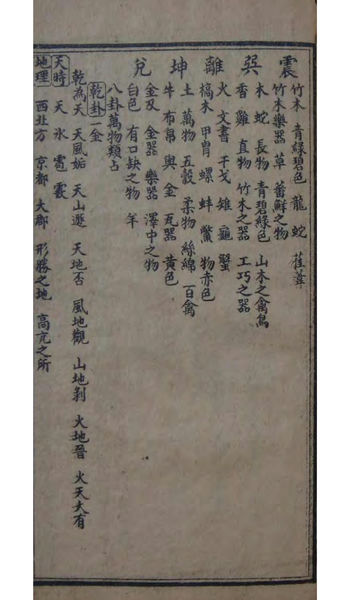 震　竹木　青綠碧色　龍　蛇　萑葦
竹木樂器　草　蕃鮮之物
巽　木　蛇　長物　青碧綠色　山木之禽鳥
香　雞　直物　竹木之器　工巧之器
離　火　文書　干戈　雉　龜　蟹
槁木　甲冑　螺　蚌　鱉　物赤色
坤　土　萬物　五穀　柔物　絲綿　百禽
牛　布帛　輿　金　瓦器　黄色
兌　金及　金器　樂器　澤中之物
白色　有口缺之物　羊
八卦萬物類占
乾卦一金
乾為天　天風姤　天山遯　天地否　風地觀　山地剝　火地晉　火天大有
天時　天　氷　雹　霰
地理　西北方　京都　大郡　形勝之地　高亢之所